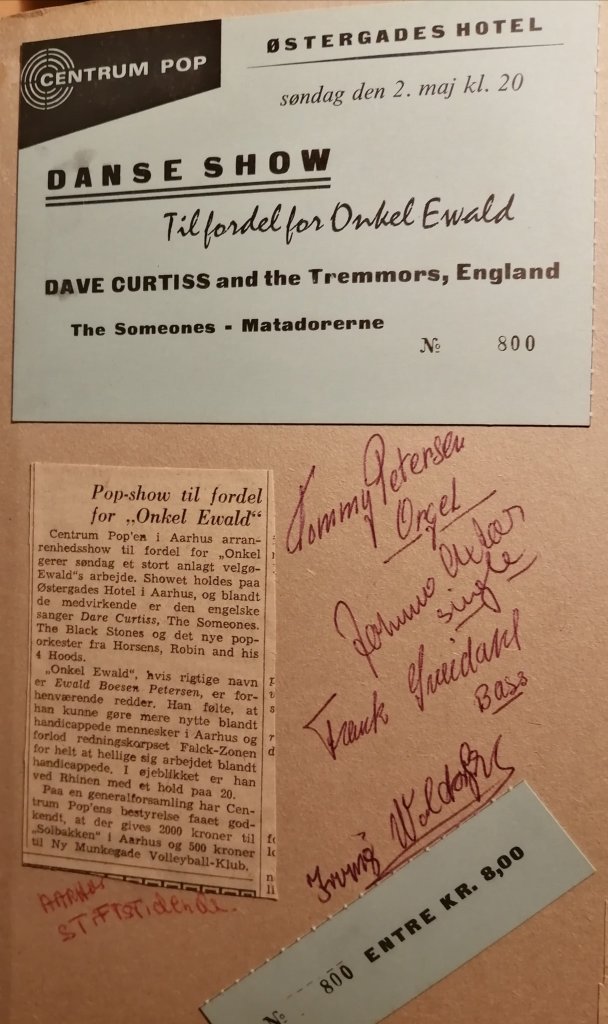 CENTRUM POP
ØSTERGADES HOTEL
søndag den 2. maj kl. 20
DANSE SHOW
Til fordel for Onkel Ewald
DAVE CURTISS and the Tremmors, England
The Someones - Matadorerne
№ 800
Pop-show til fordel
for „Onkel Ewald“
Centrum Pop'en i Aarhus arran-
renhedsshow til fordel for „Onkel
gerer søndag et stort anlagt velgø-
Ewald“s arbejde. Showet holdes paa
Østergades Hotel i Aarhus, og blandt
de medvirkende er den engelske
sanger Dare Curtiss, The Someones.
The Black Stones og det nye pop-
orkester fra Horsens, Robin and his
4 Hoods.
„Onkel Ewald“, hvis rigtige navn
er Ewald Boesen Petersen, er for-
henværende redder. Han følte, at
han kunne gøre mere nytte blandt
handicappede mennesker i Aarhus og
forlod redningskorpset Falck-Zonen
for helt at hellige sig arbejdet blandt
handicappede. I øjeblikket er han
ved Rhinen med et hold paa 20.
Paa en generalforsamling har Cen-
trum Pop'ens bestyrelse faaet god-
kendt, at der gives 2000 kroner til
„Solbakken“ i Aarhus og 500 kroner
til Ny Munkegade Volleyball-Klub.
AARHUS
STIFTSTIDENDE.
Tommy Petersen
Orgel
single
Frank
Bass
№ 800 ENTRE KR. 8,00